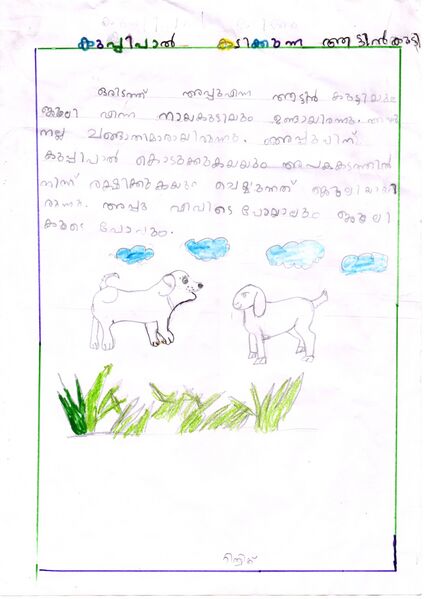 കുപ്പിപാൽ കുടിക്കുന്ന ആട്ടിൻകുട്ടി
ഒരിടത്ത് അപ്പുഎന്ന ആട്ടിൻ കുട്ടിയും
ജൂലി എന്ന നായകുട്ടിയും ഉണ്ടായിരുന്നു.
നല്ല ചങ്ങാതിമാരായിരുന്നു. അപ്പുവിന്
കുപ്പിപാൽ കൊടുക്കുകയും അപകടത്തിൽ
നിന്ന് രക്ഷിക്കുകയും ചെയ്യുന്നത് ജൂലിയായി
രുന്നു. അപ്പു എവിടെ പോയാലും ജൂലി
കൂടെ പോവും.